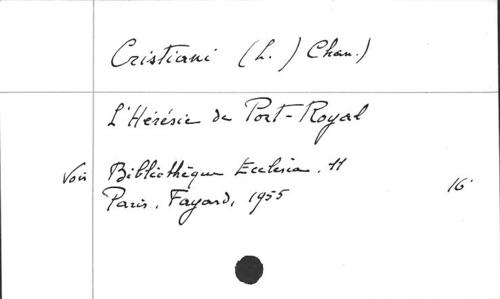 Cristiani (L.) Chan.)
L'Hérésie de Port-Royal
Voir Bibliothèque Ecclesia. 11
Paris, Fayard, 1955 16°